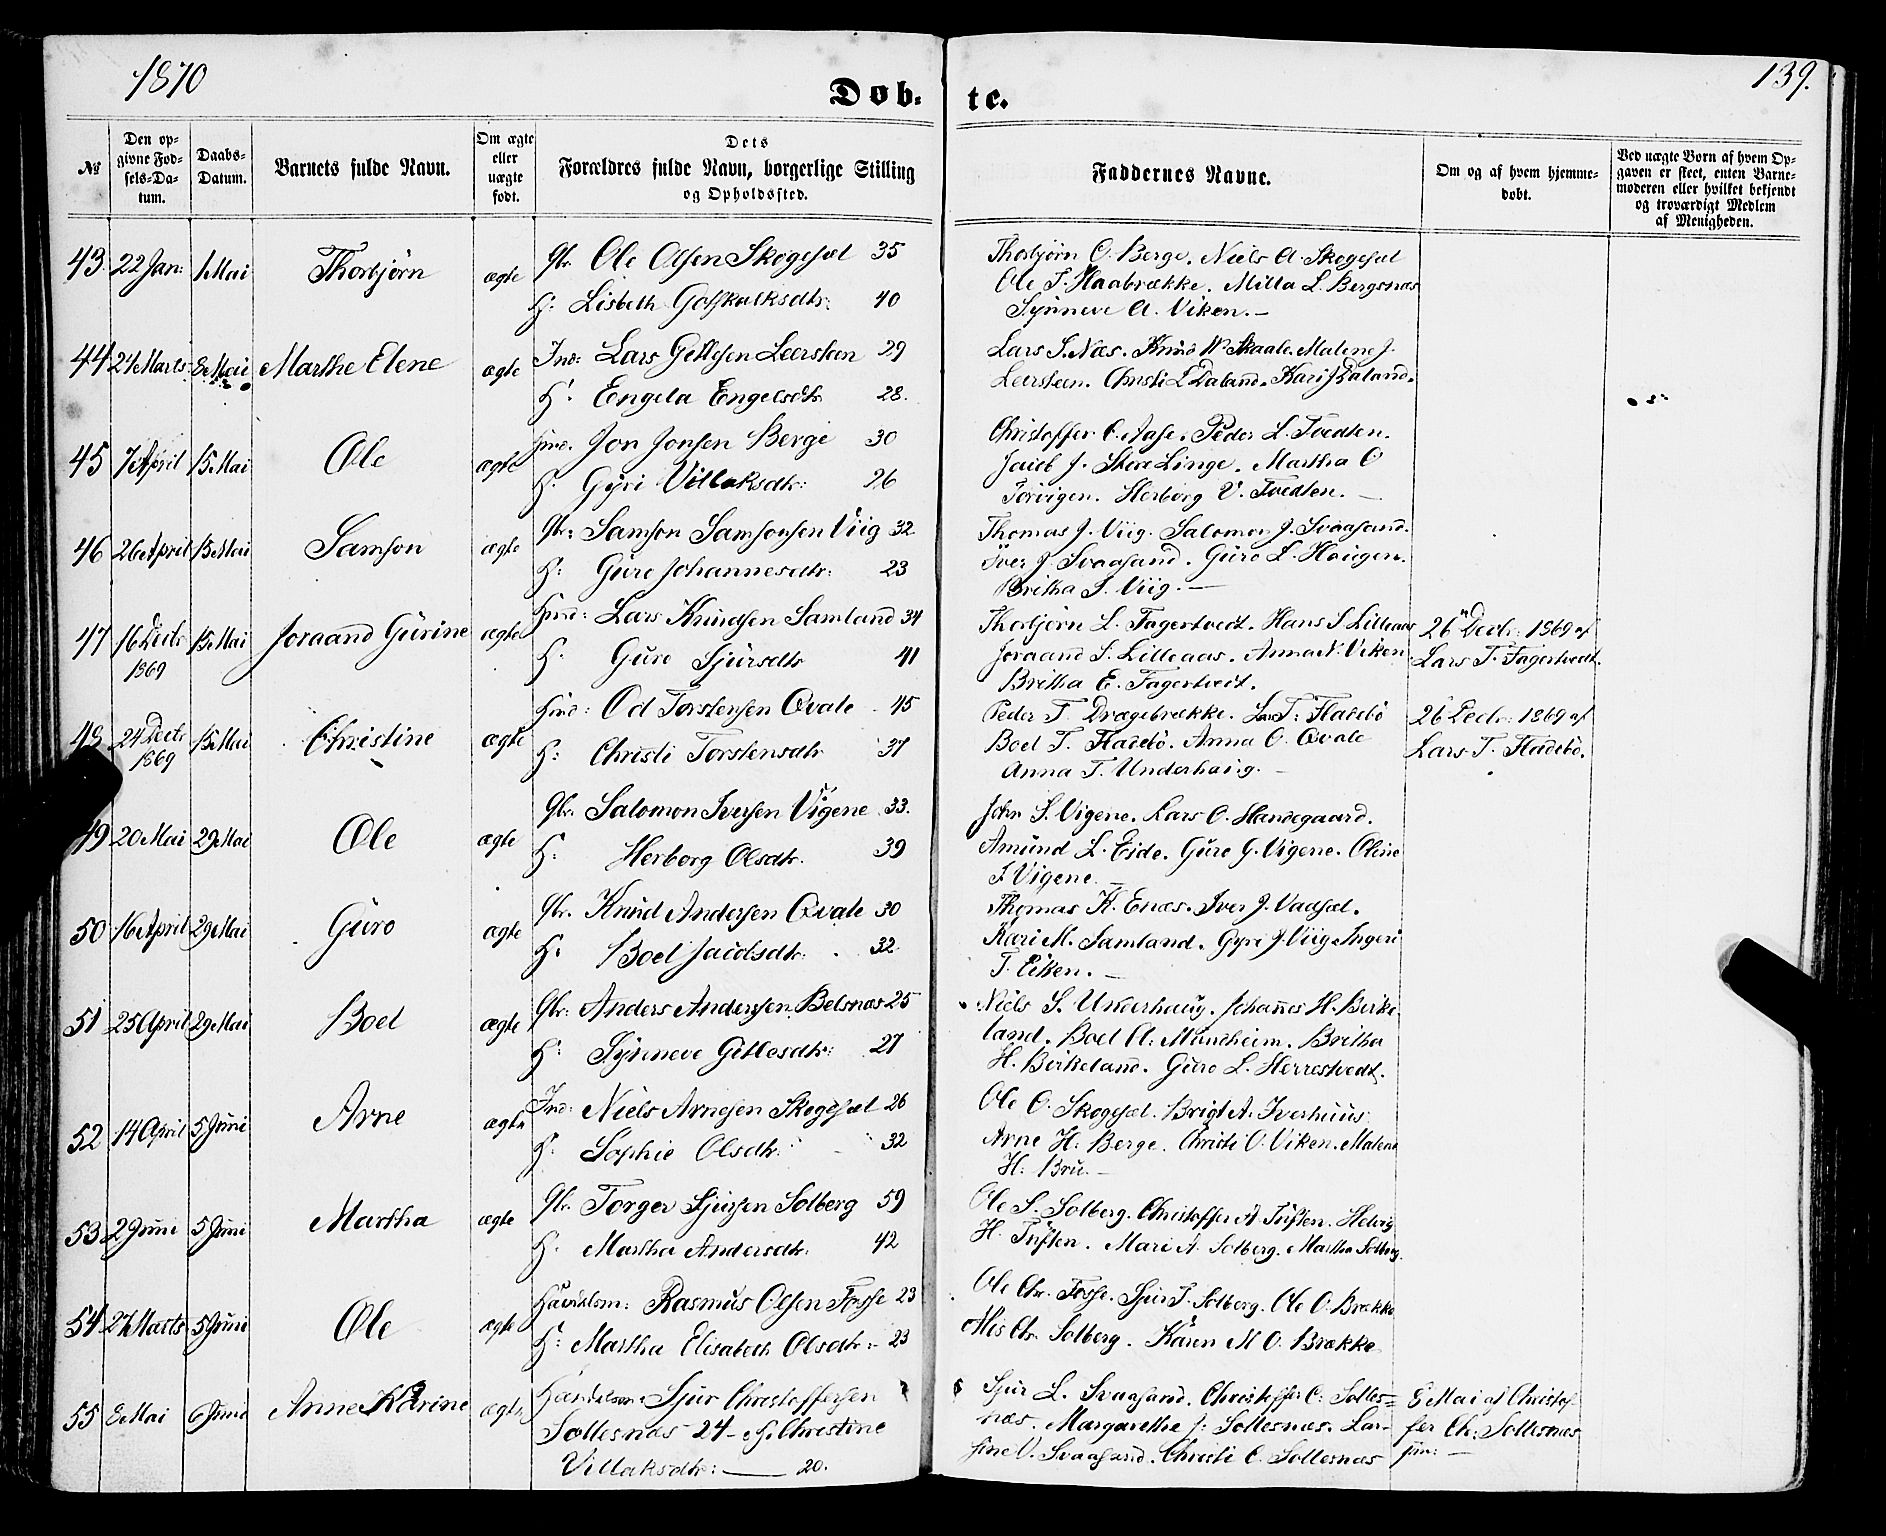 1870
139.
Døb-te.
№
Den opgivne Fødsels-Datum.
Daabs-Datum.
Barnets fulde Navn.
Om ægte eller uægte født.
Dets Forældres fulde Navn, borgerlige Stilling og Opholdssted.
Faddernes Navne.
Om og af hvem hjemmedøbt.
Ved uægte Børn af hvem Opgaven er skeet, enten Barnemoderen eller hvilket bekjendt og troværdigt Medlem af Menigheden.
43 22 Jan: 1 Mai Thorbjörn ægte Gbr. Ole Olsen Skogesæl 35
H: Lisbeth Gotskalksdtr: 40
Thorbjörn O. Berge. Niels A. Skogesæl
Ole T. Haabrække. Milla L. Bergsnæs
Synneve A. Viken.—
44 24 Marts 8 Mai Marthe Elene ægte Ind: Lars Gitlesen Leersteen 29
H: Engela Engelsdtr 28.
Lars S. Næs. Knud Skaale. Malene J.
Leersteen. Christi L Daland. Kari J Daland.
45 7 April 15 Mai Ole ægte Hmd. Jon Jonsen Berge 30
H. Gyri Villaksdtr: 26
Christoffer C. Aase. Peder L. Tvedten.
Jacob J. Store Linge. Martha O
Herborg V. Tvedten.—
46 26 April 15 Mai Samson ægte Gbr: Samson Samsonsen Viig 32
H: Guro Johannesdtr: 23
Thomas J. Viig. Salomon J. Svaasand.
Iver J. Svaasand. Guro L. Haugen.
Britha S. Viig.—
47 16 Decbr 1869 15 Mai Joraand Gurine ægte Hmd: Lars Knudsen Samland 34
H: Guro Sjursdtr 41
Thorbjörn L. Fagertvedt. Hans S Lilleaas
Joraand S. Lilleaas. Anna N. Viken
Britha E. Fagertveit.
26 Decbr: 1869 af
Lars T. Fagertvedt.
48 24 Decbr 1869 15 Mai Christine ægte Hmd: Od Torstensen Qvale 45
H: Christi Torstensdtr 37
Peder T. Drægebrække. Lars T. Fladebö
Boel T. Fladebö. Anna O. Qvale
Anna T. Underhaug.—
26 Decbr: 1869 af
Lars T. Fladebö.
49 20 Mai 29 Mai Ole ægte Gbr. Salomon Iversen Vigene 33.
H: Herborg Olsdtr. 39
John S. Vigene. Lars O. Handegaard.
Amund L. Eide. Guro G. Vigene. Oline
I. Vigene
50 16 April 29 Mai Guro ægte Gbr. Knud Andersen Qvale 30
H. Boel Jacobsdtr: 32
Thomas K. Enæs. Iver J. Vaasæl.
Kari M. Samland. Gyri J. Viig. Ingeri
T. Eiken.—
51 25 April 29 Mai Boel ægte Gbr: Anders Andersen Belsnæs 25
H: Synneve Gitlesdtr: 27
Niels S. Underhaug. Johannes H. Birke-
land. Boel A. Mundheim. Britha
H. Birkeland. Guro L. Herrestvedt.
52 14 April 5 Juni Arne ægte Ind: Niels Arnesen Skogesæl 26
H: Sophie Olsdtr: 32
Ole O. Skogesæl. Brigt A. Iverhuus.
Arne H: Berge. Christi O. Viken. Malene
H: Bru.—
53 2 Juni 5 Juni Martha ægte Gbr. Torger Sjursen Solberg 59
H. Martha Andersdtr: 42
Ole S. Solberg. Christoffer A. Tuften. Helvig
H. Tuften. Mari A. Solberg. Martha Solberg.
54 27 Marts 5 Juni Ole ægte Handelsm: Rasmus Olsen Fosse 23
H: Martha Elisabeth Olsdtr:- 23
Ole Chr. Fosse. Sjur T. Solberg. Ole O. Brække
Chr. Solberg. Karen M O. Brække
55 8 Mai 6 Juni Anne Karine ægte Handelsm: Sjur Christoffersen
Soltesnæs 24 - H. Christine
Villaksdtr:— 20.
Sjur L. Svaasand. Christoffer C: Soltes=
næs. Margarethe J: Soltesnæs. Lar-
sine V. Svaasand. Christi C. Soltesnæs
8 Mai af Christof-
fer Ch: Soltesnæs
jun:—